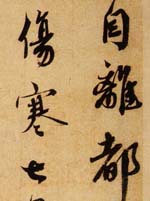 自離都
傷寒七